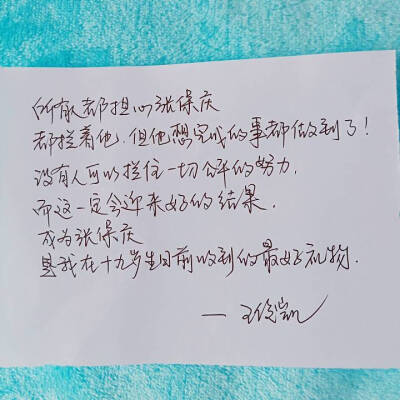 所有人都担心张保庆
都拦着他,但他想完成的事都做到了!
没有人可以拦住一切公平的努力,
而这一定会迎来好的结果.
成为张保庆
是我在十九岁生日前收到的最好礼物.
—王俊凯